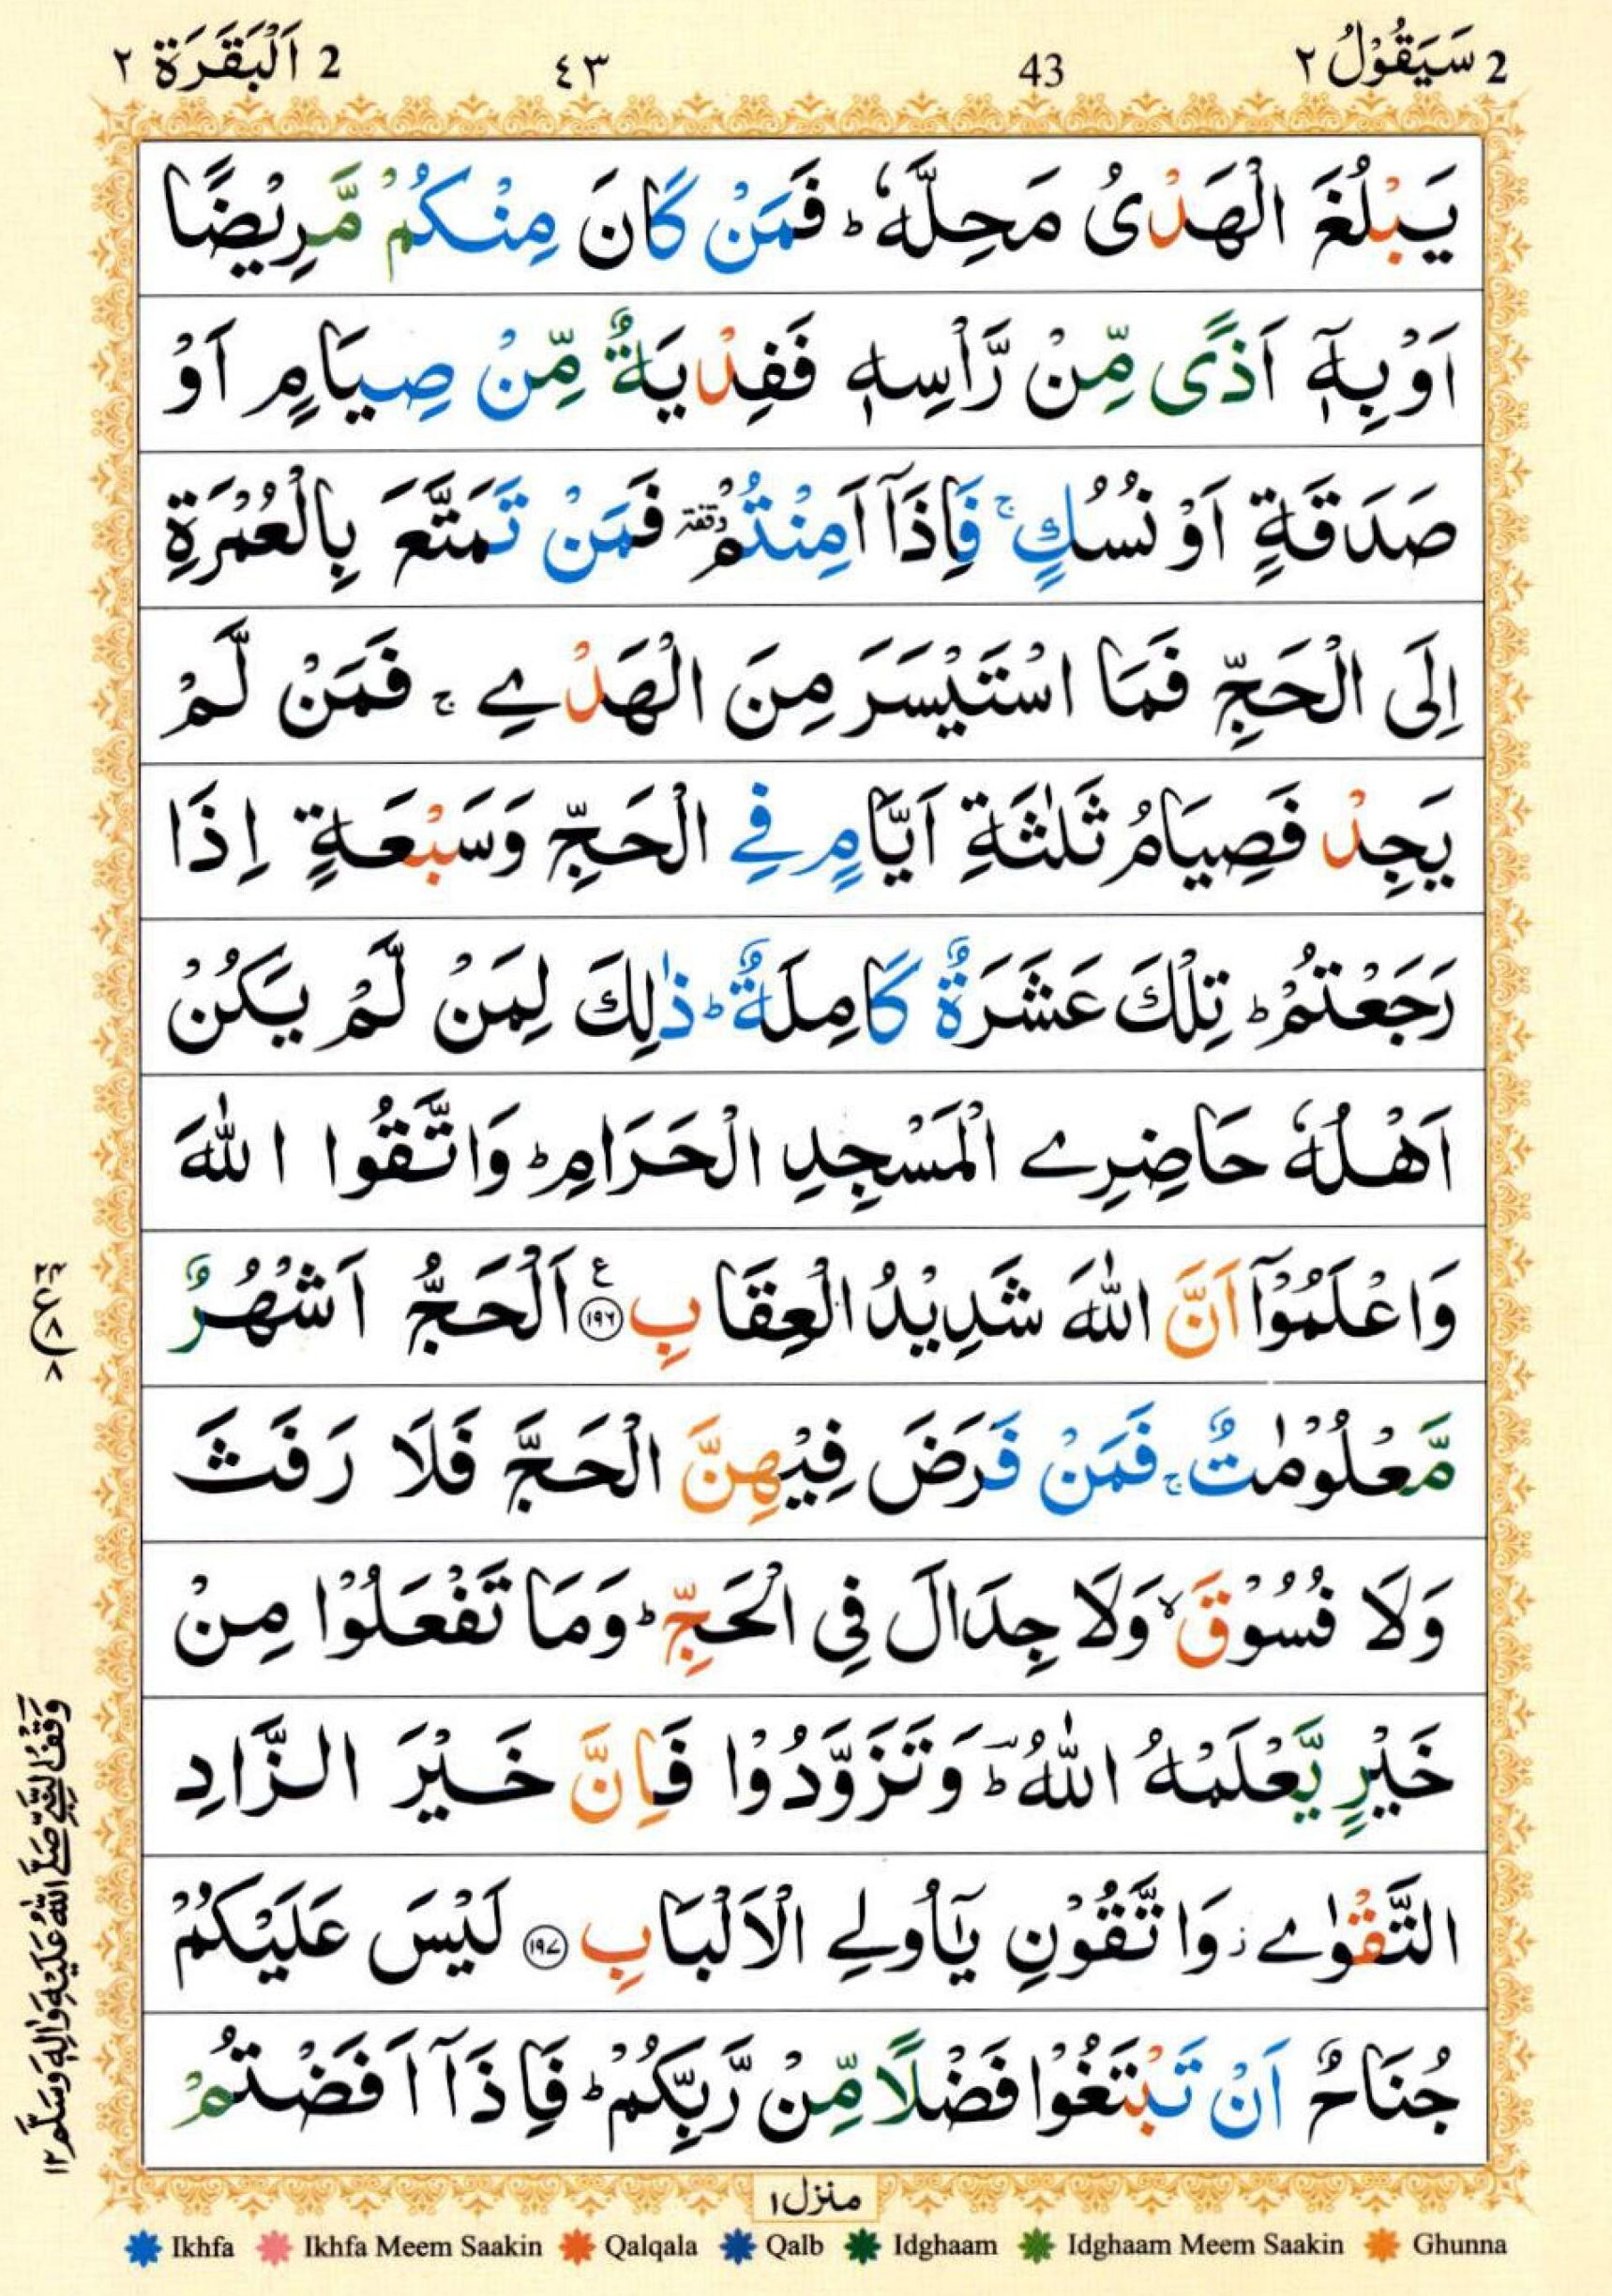 2 سَيَقُوْلُ ٢ 43 ٤٣ 2 اَلْبَقَرَة ٢
يَبْلُغَ الْهَدْىُ مَحِلَّهٗ ؕ فَمَنْ كَانَ مِنْكُمْ مَّرِيْضًا
اَوْ بِهٖۤ اَذًى مِّنْ رَّاْسِهٖ فَفِدْيَةٌ مِّنْ صِيَامٍ اَوْ
صَدَقَةٍ اَوْ نُسُكٍ ۚ فَاِذَاۤ اَمِنْتُمْ وقفة فَمَنْ تَمَتَّعَ بِالْعُمْرَةِ
اِلَى الْحَجِّ فَمَا اسْتَيْسَرَ مِنَ الْهَدْيِ ۚ فَمَنْ لَّمْ
يَجِدْ فَصِيَامُ ثَلٰثَةِ اَيَّامٍ فِي الْحَجِّ وَسَبْعَةٍ اِذَا
رَجَعْتُمْ ؕ تِلْكَ عَشَرَةٌ كَامِلَةٌ ؕ ذٰلِكَ لِمَنْ لَّمْ يَكُنْ
اَهْلُهٗ حَاضِرِي الْمَسْجِدِ الْحَرَامِ ؕ وَاتَّقُوا اللّٰهَ
وَاعْلَمُوْۤا اَنَّ اللّٰهَ شَدِيْدُ الْعِقَابِ ۧ ﴿١٩٦﴾ اَلْحَجُّ اَشْهُرٌ
مَّعْلُوْمٰتٌ ۚ فَمَنْ فَرَضَ فِيْهِنَّ الْحَجَّ فَلَا رَفَثَ
وَلَا فُسُوْقَ ۙ وَلَا جِدَالَ فِى الْحَجِّ ؕ وَمَا تَفْعَلُوْا مِنْ
خَيْرٍ يَّعْلَمْهُ اللّٰهُ ؕ وَتَزَوَّدُوْا فَاِنَّ خَيْرَ الزَّادِ
التَّقْوٰى ز وَاتَّقُوْنِ يٰۤاُولِي الْاَلْبَابِ ﴿١٩٧﴾ لَيْسَ عَلَيْكُمْ
جُنَاحٌ اَنْ تَبْتَغُوْا فَضْلًا مِّنْ رَّبِّكُمْ ؕ فَاِذَاۤ اَفَضْتُمْ
وَقْفُ النَّبِيِّ صَلَّى اللّٰهُ عَلَيْهِ وَاٰلِهٖ وَسَلَّمَ ١٢
منزل ١
Ikhfa Ikhfa Meem Saakin Qalqala Qalb Idghaam Idghaam Meem Saakin Ghunna